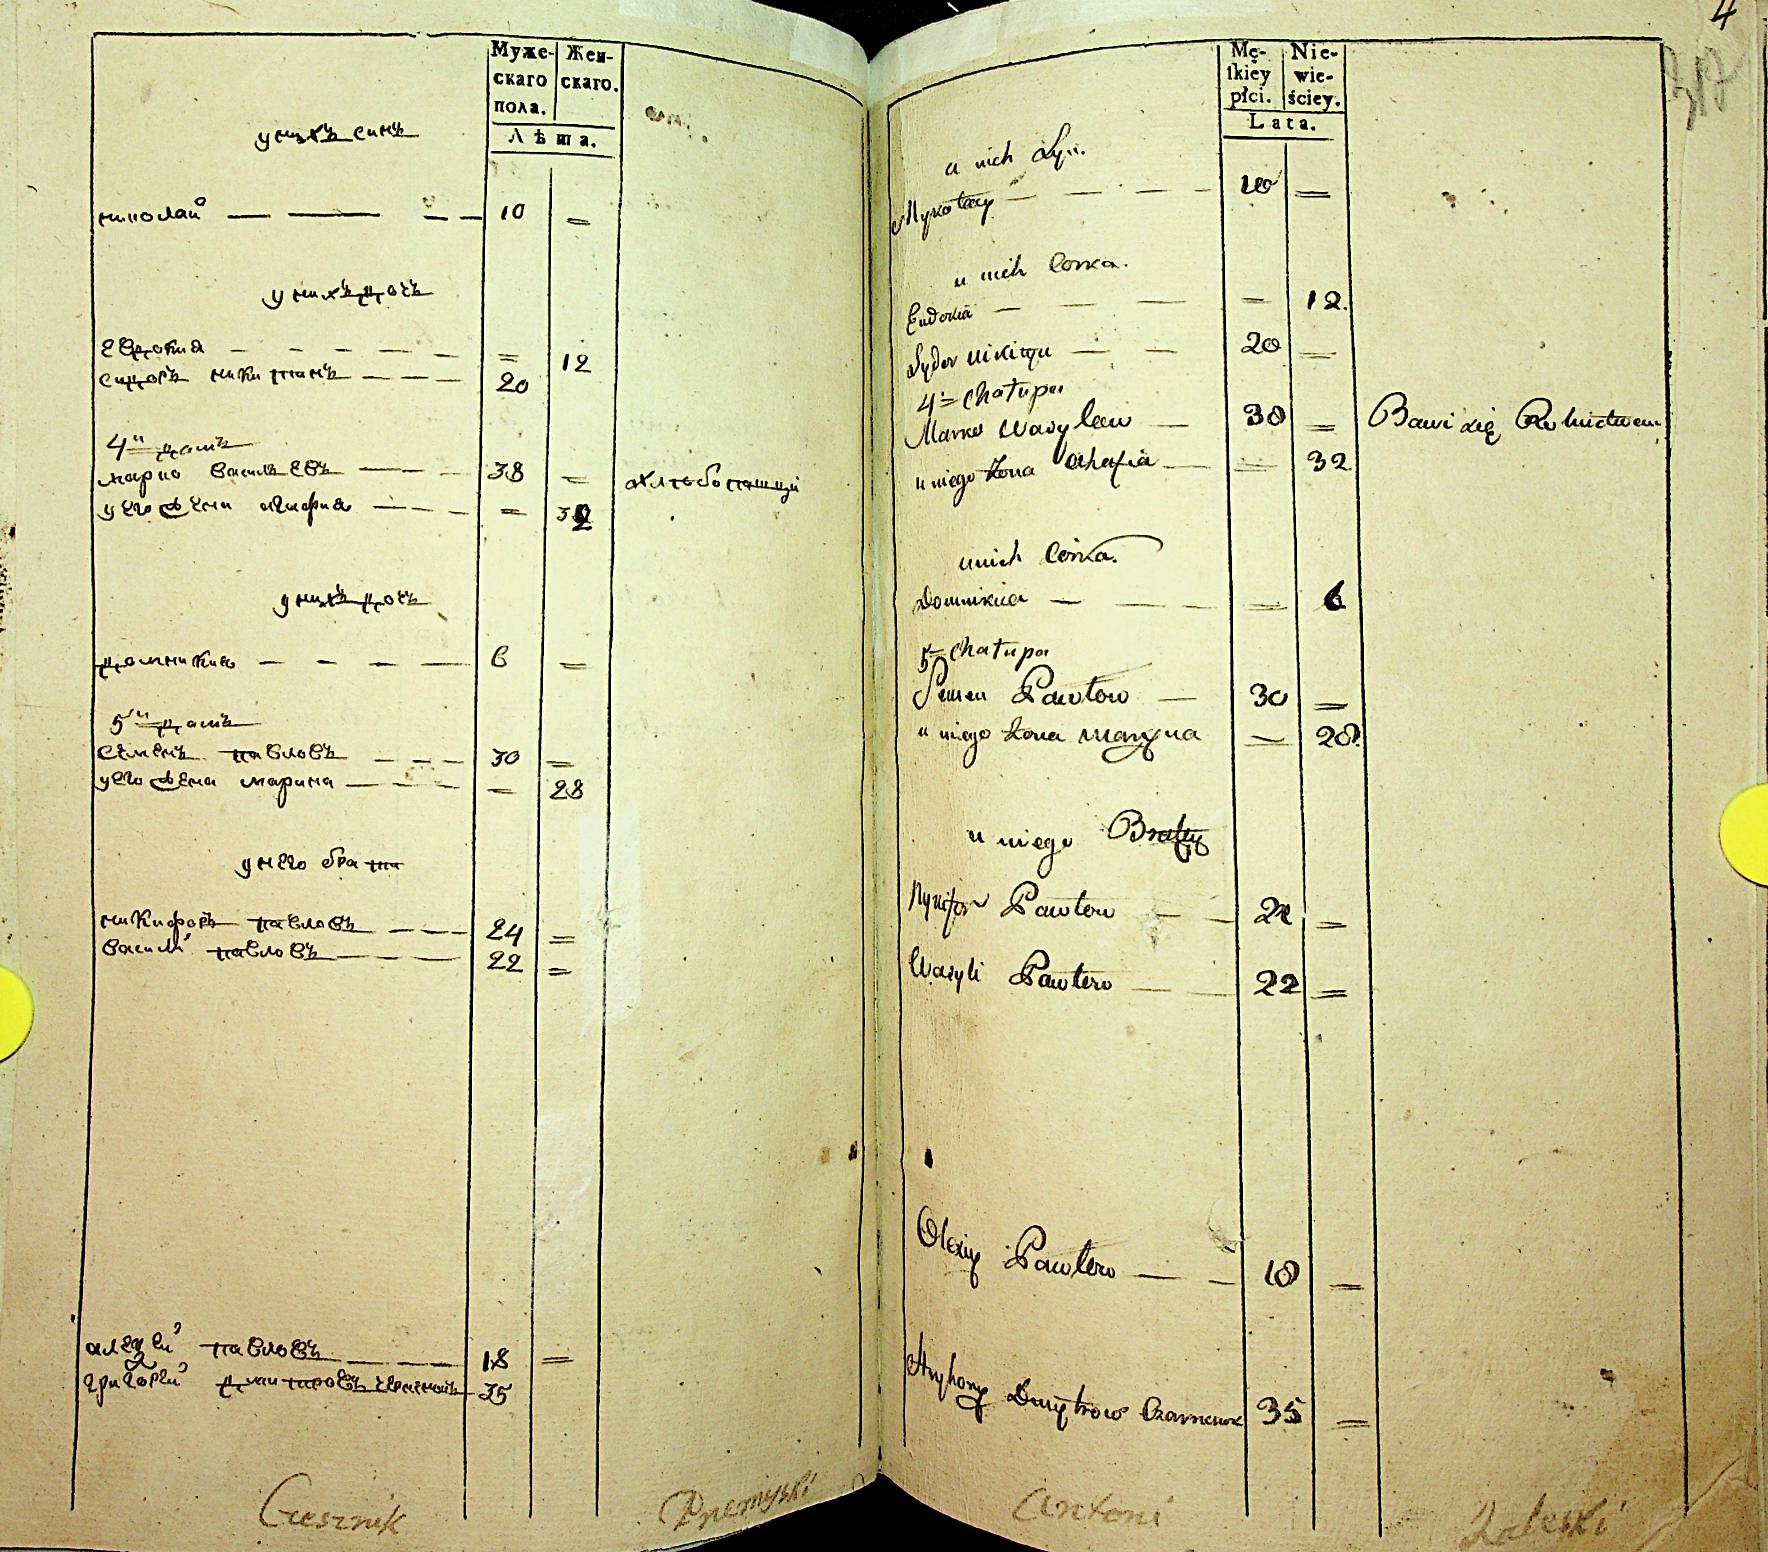 Муже-
скаго
пола.
Жен-
скаго.
Лѣта.
у нихъ синъ
николай 10 =
у нихъ дочъ
евдокия = 12
сидоръ никитинъ 20
4й домъ
марко василевъ 38 = охлебопашци
у его жена агафия = 32
у нихъ дочъ
домникия 6 =
5й домъ
семенъ павловъ 30 =
у его жена марина = 28
у него брати
никифоръ павловъ 24 =
василий павловъ 22 =
алексей павловъ 18 =
григорей дмитровъ 35
Czesznik Przemyski
4
317
Mę-
skiey
płci.
Nie-
wie-
ściey.
Lata.
u nich Syn.
Mykołay 10 =
u nich Corka.
Eudokia = 12.
Syder Nikityn 20 =
4= Chałupa
Marko Wasylew 38 = Bawi się Rolnictwem
u niego żona Ahafia = 32
u nich Córka.
Domnikiia = 6
5= Chałupa
Semen Pawłow 30 =
u niego żona Maryna = 28.
u niego Bratły
Nykifor Pawłow 24 =
Wasyli Pawłow 22 =
Olexiy Pawłow 18 =
Hryhory Dmytrow 35 =
Antoni Zaleski